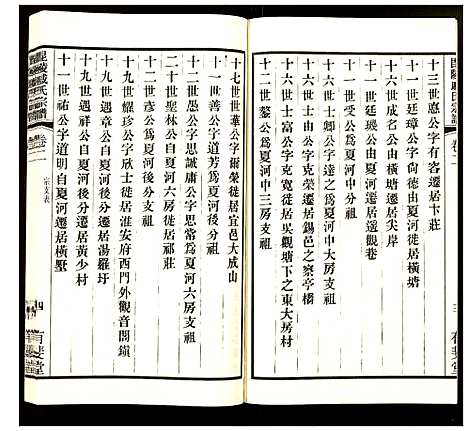 毘陵臧氏宗譜 卷二
十三世惠公字有容遷居卞莊
十一世廷璋公字尙德由夏河徙居橫塘
十六世成名公由橫塘遷居尖岸
十一世廷瑛公字 遷居遥觀巷
十一世受公爲夏河中三房支祖
十二世 公字 爲夏河中大房支祖
十六世士 公字克榮遷居錫邑之察亭橋
十八世士富公字克寬徙居吳觀塘下之東大房村
十八世 公 爲夏河中三房支祖
三 有斐堂
十七世世華公字爾榮徙居宜邑大成山
十一世善公字道芳爲夏河
十三世愚公字思誠庸公字思常爲夏河六房支祖
二十世聖林公自夏河六房徙居祁莊
十二世彥公爲夏河後分支祖
十九世耀珍公字欣士徙居淮安府西門外觀音閣鎭
十九世遇章公自夏河後分遷居湯羅圩
十九世遇祥公自夏河後分遷居黃少村
十一世祐公字道明自夏河遷居橫墅
毘陵臧氏宗譜 卷二 宗支表
四 有斐堂